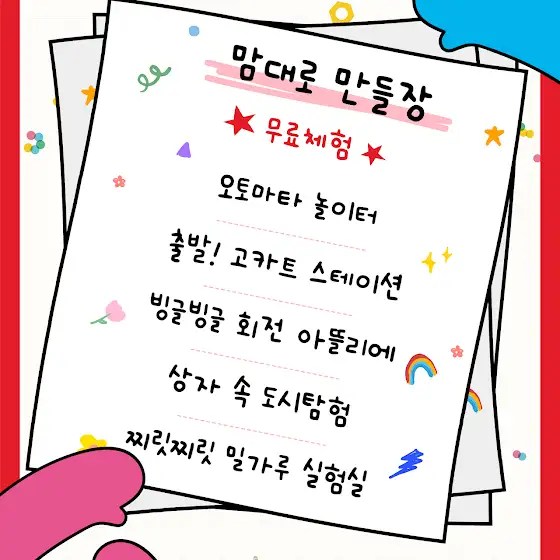 맘대로 만들장
무료체험
오토마타 놀이터
출발! 고카트 스테이션
빙글빙글 회전 아뜰리에
상자 속 도시탐험
찌릿찌릿 밀가루 실험실